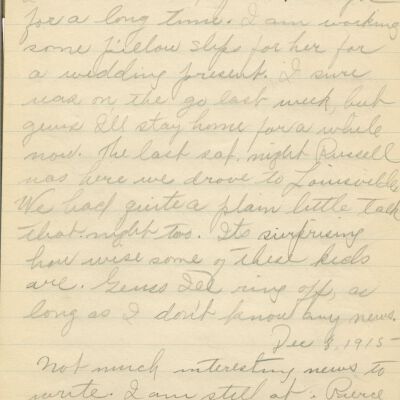 for a long time. I am working
some pillow slips for her for
a wedding present. I sure
was on the go last week, but
geuss I'll stay home for a while
now. The last sat. night Russell
was here we drove to Louisville
We had quite a plain little talk
that night too. Its surprising
how wise some of these kids
are. Geuss I'll ring off, as
long as I don't know any news.
Dec 3, 1915-
Not much interesting news to
write. I am still at . Pierce